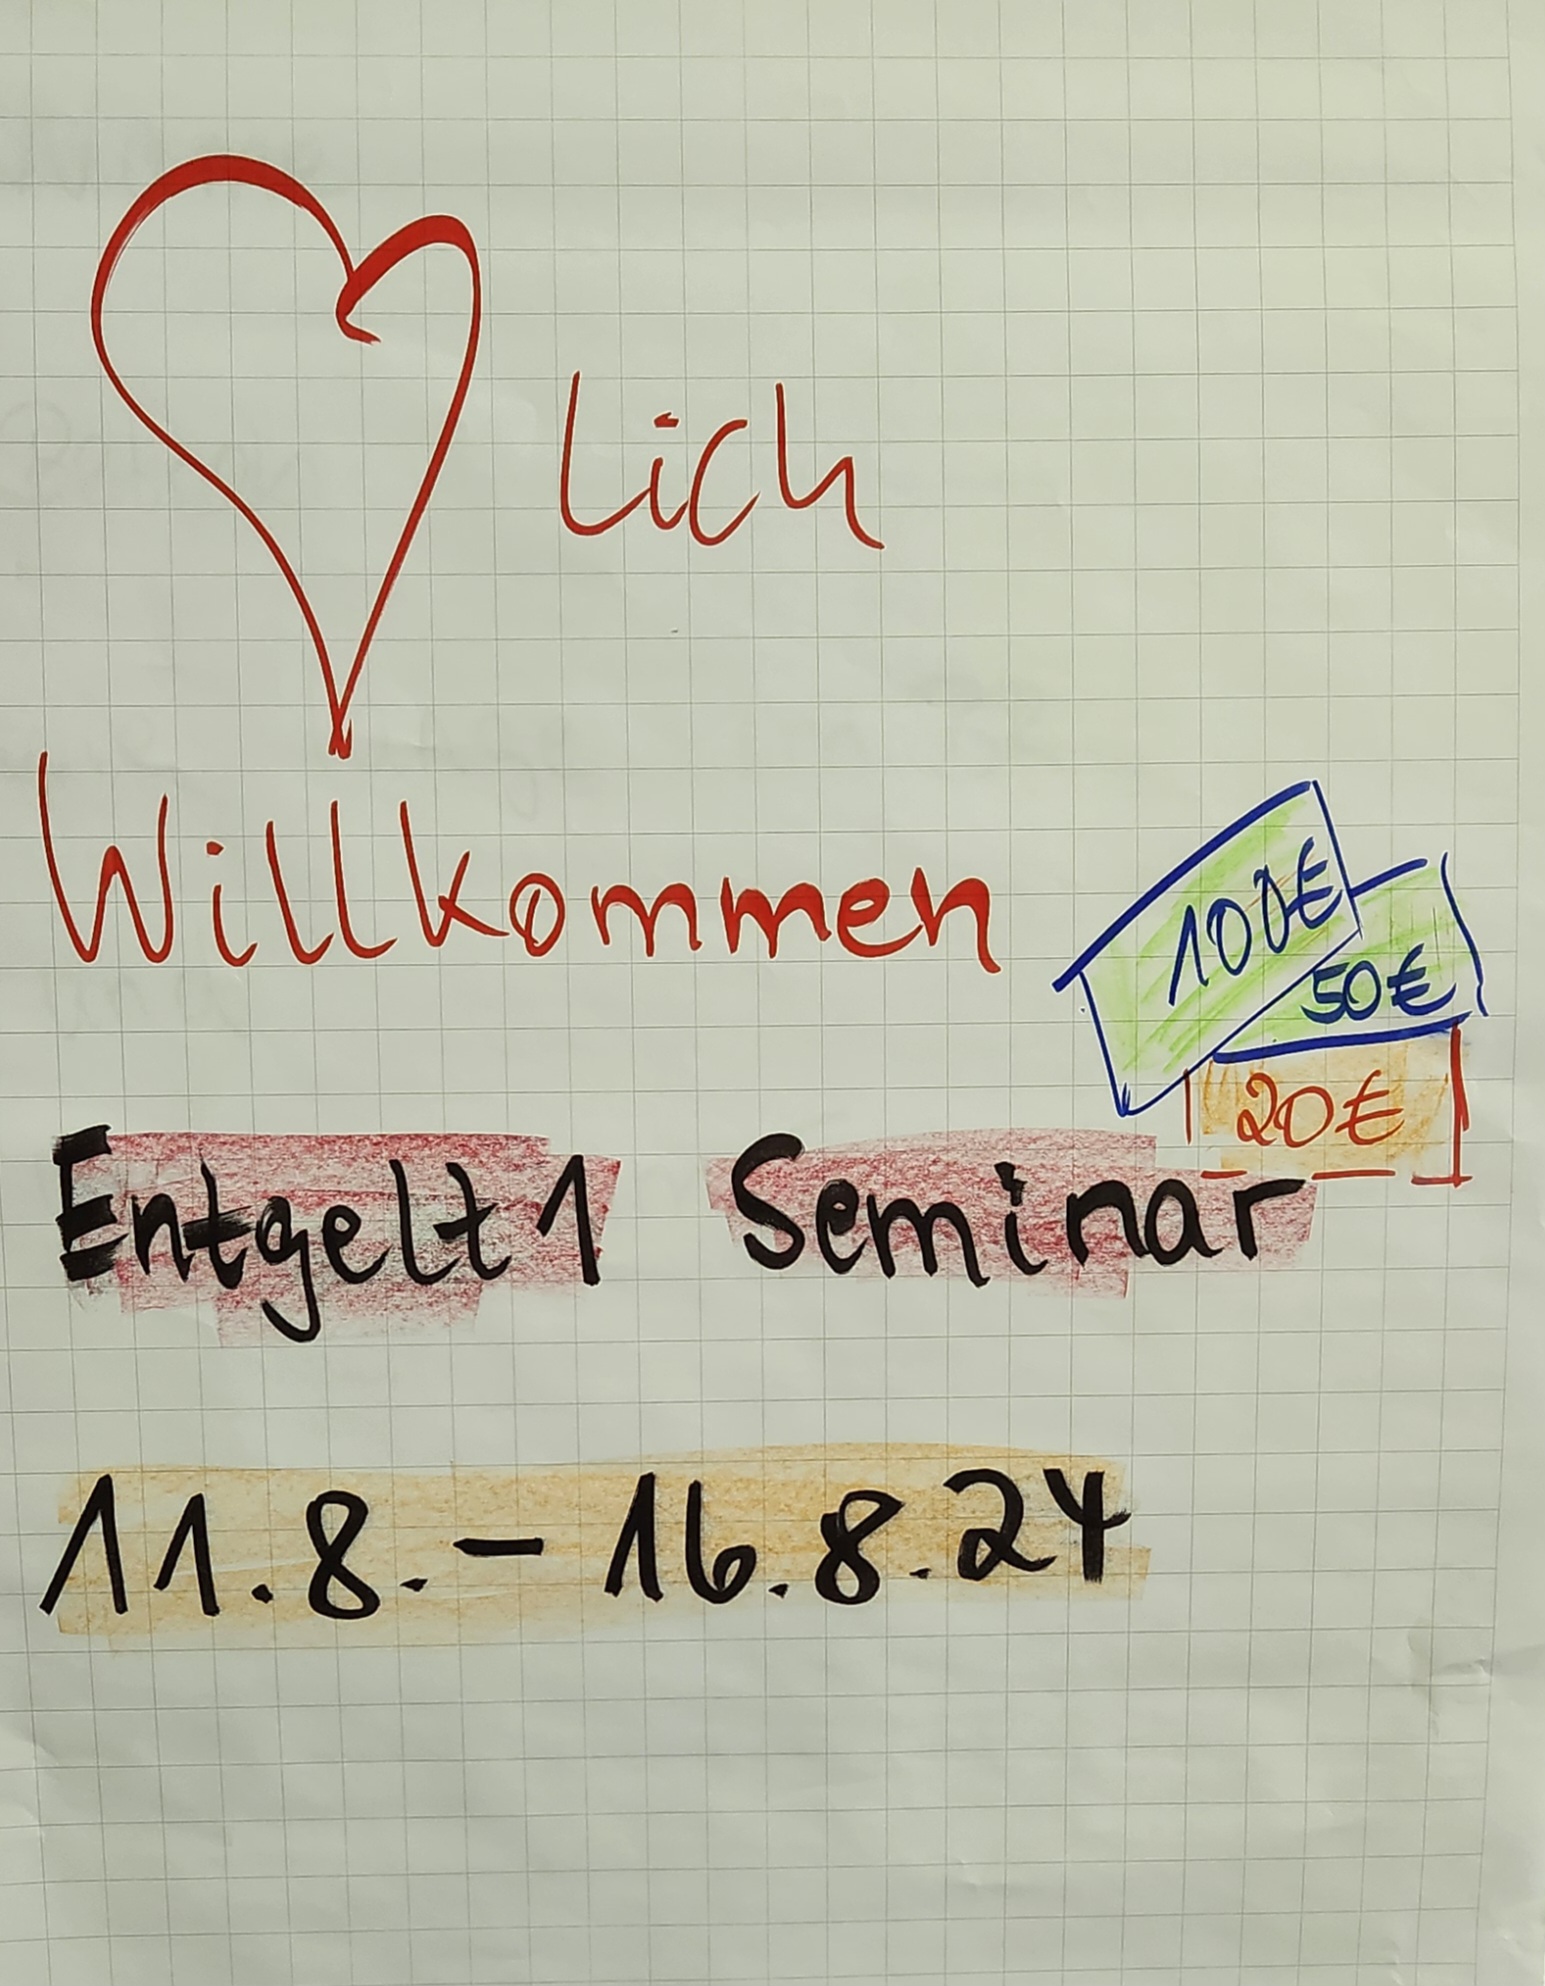 lich
Willkommen
100€
50€
20€
Entgelt 1 Seminar
11.8. - 16.8.24